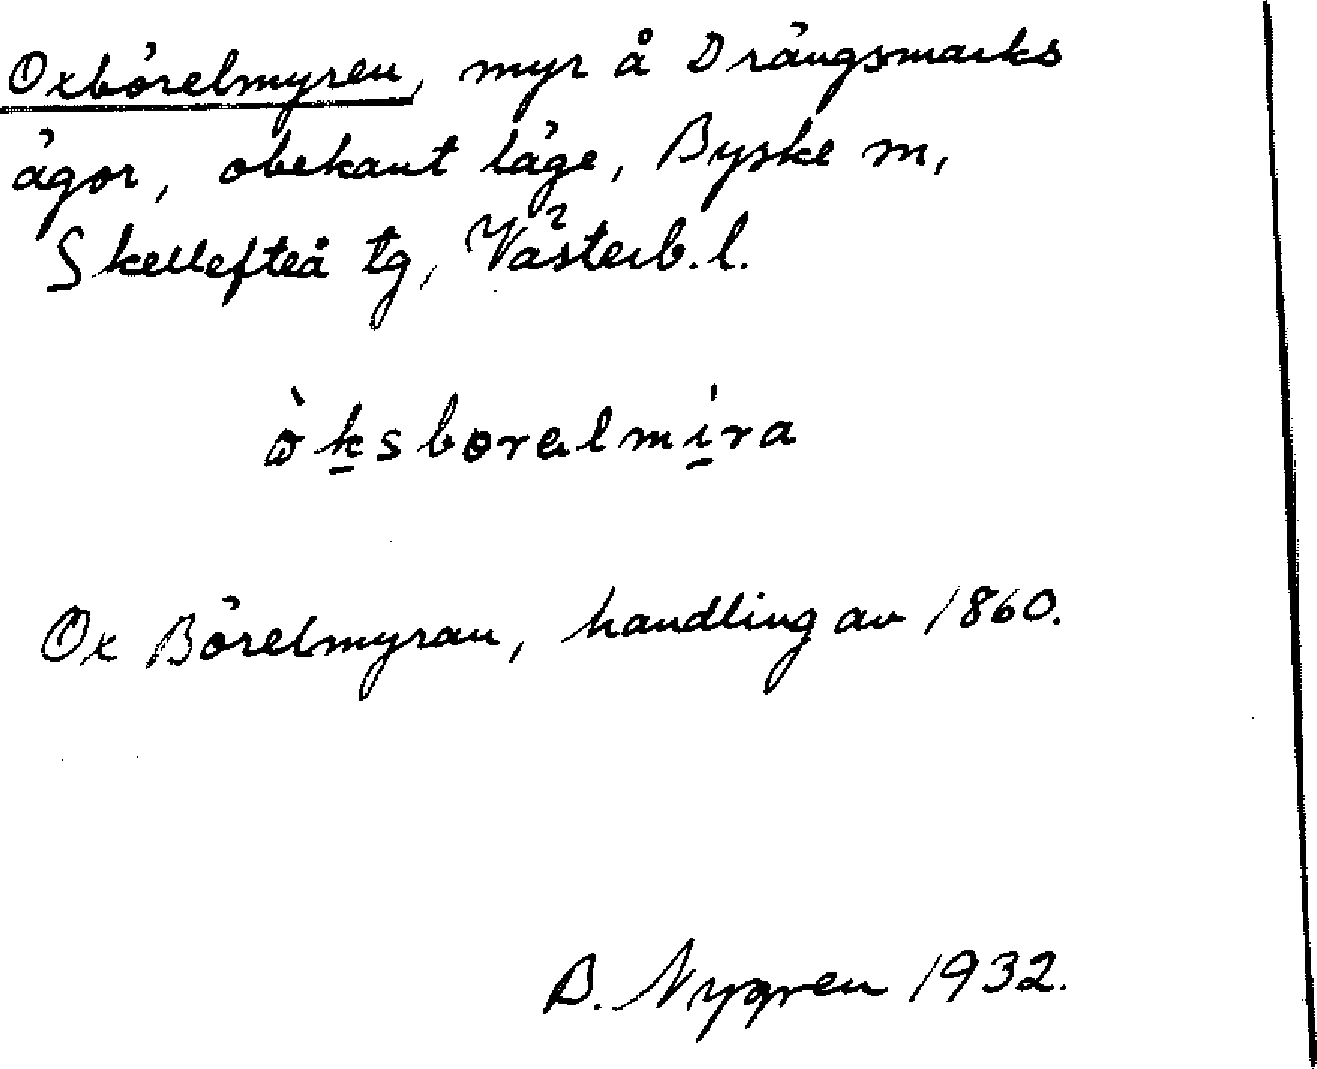 Oxbörelmyren, myr å Drängsmarks
ägor, obekant läge, Byske m,
Skellefteå tg, Västerb. l.
òk̲sborəlmi̲ra
Ox Börelmyran, handling av 1860.
B. Nygren 1932.